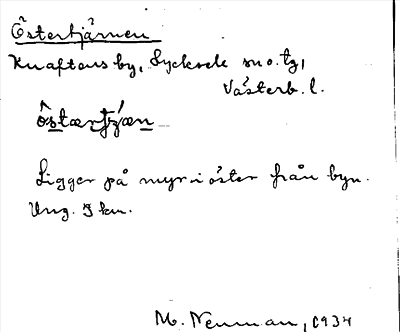 Östertjärnen
Knaftens by, Lycksele sn o. tg,
Västerb. l.
östærtjǽn
Ligger på myr i öster från byn.
Ung. 5 km.
M. Nenman, 1934